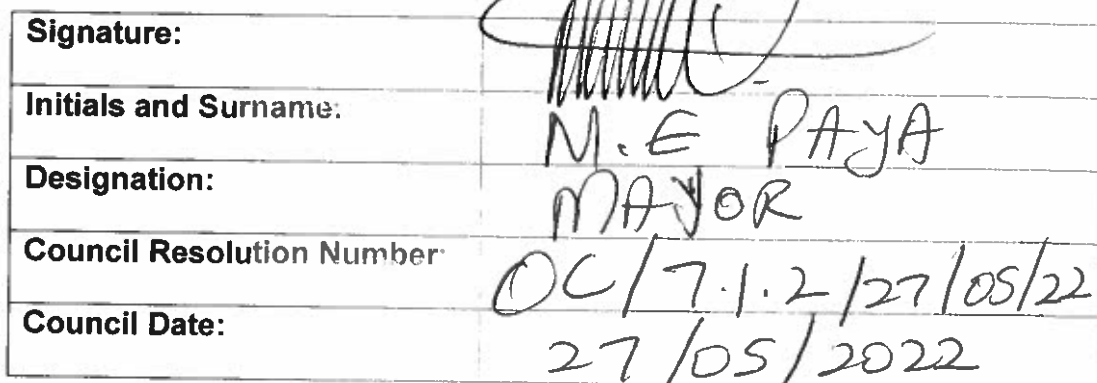 Signature:
Initials and Surname: M.E PAYA
Designation: MAYOR
Council Resolution Number: OC/7.1.2/27/05/22
Council Date: 27/05/2022